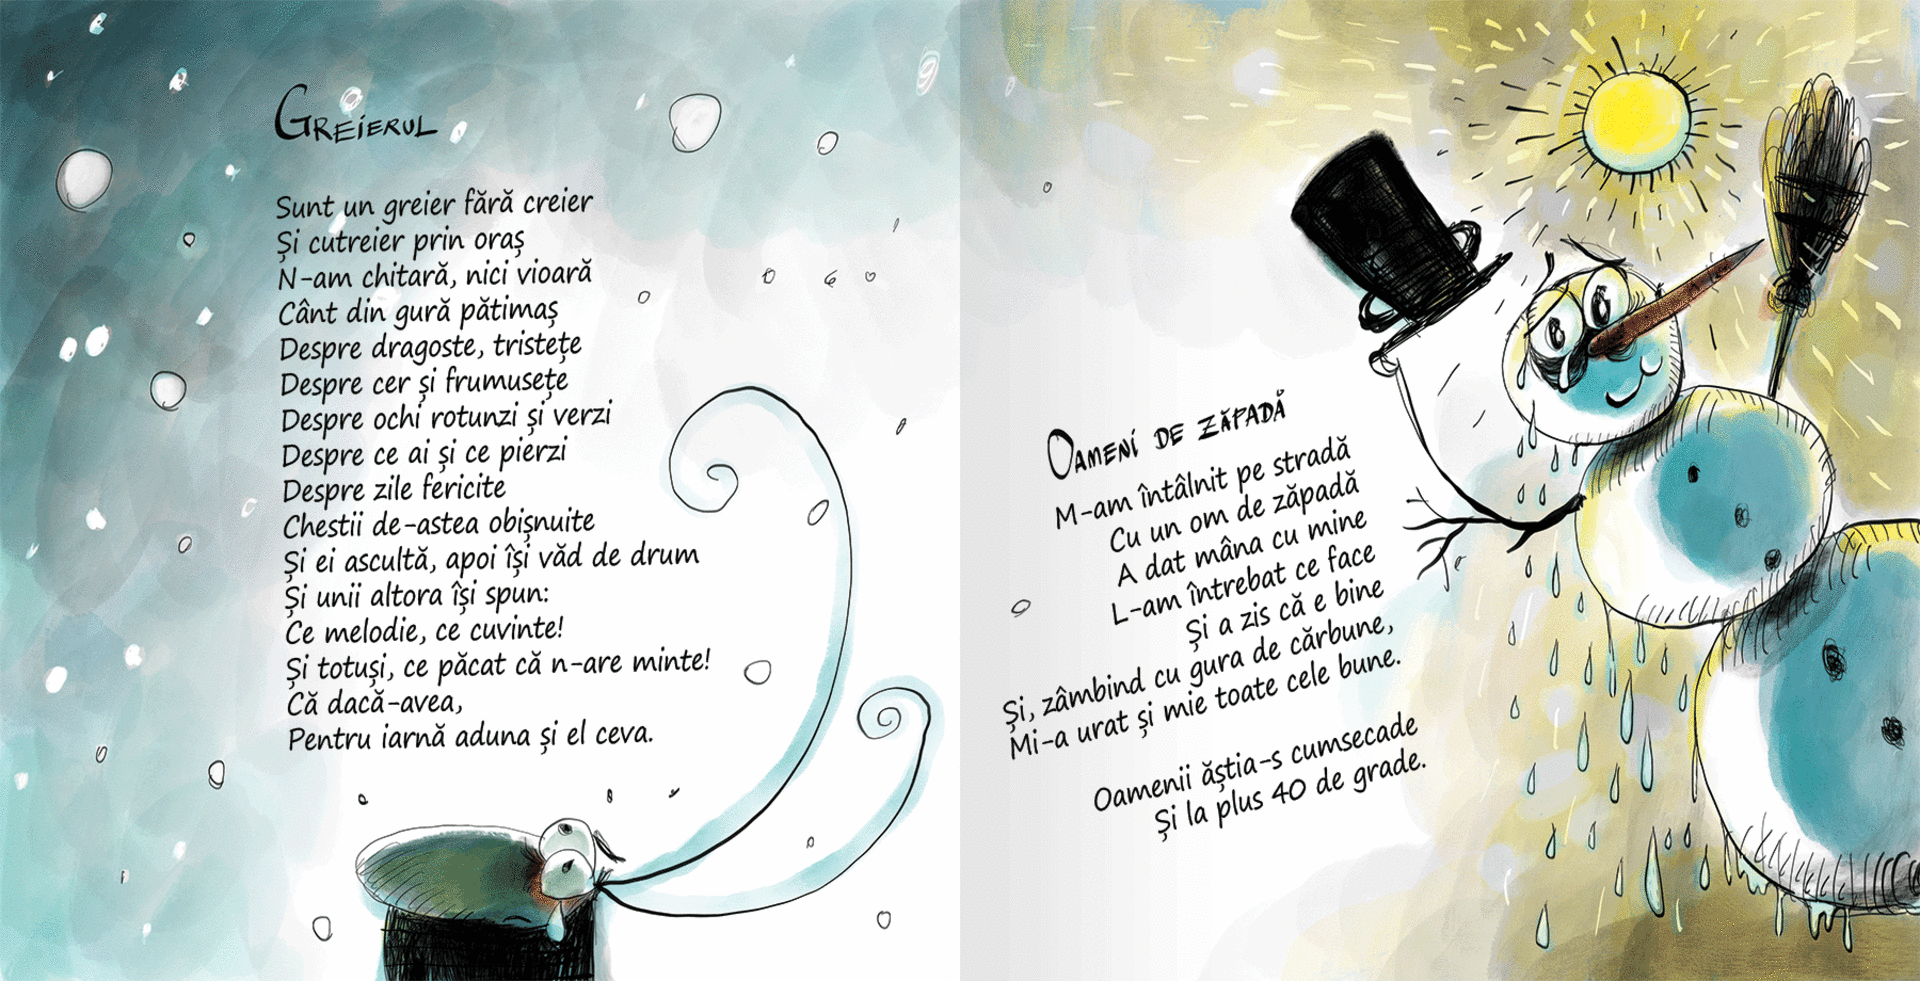 Greierul
Sunt un greier fără creier
Și cutreier prin oraș
N-am chitară, nici vioară
Cânt din gură pătimaș
Despre dragoste, tristețe
Despre cer și frumusețe
Despre ochi rotunzi și verzi
Despre ce ai și ce pierzi
Despre zile fericite
Chestii de-astea obișnuite
Și ei ascultă, apoi își văd de drum
Și unii altora își spun:
Ce melodie, ce cuvinte!
Și totuși, ce păcat că n-are minte!
Că dacă-avea,
Pentru iarnă aduna și el ceva.
Oameni de zăpadă
M-am întâlnit pe stradă
Cu un om de zăpadă
A dat mâna cu mine
L-am întrebat ce face
Și a zis că e bine
Și, zâmbind cu gura de cărbune,
Mi-a urat și mie toate cele bune.
Oamenii ăștia-s cumsecade
Și la plus 40 de grade.